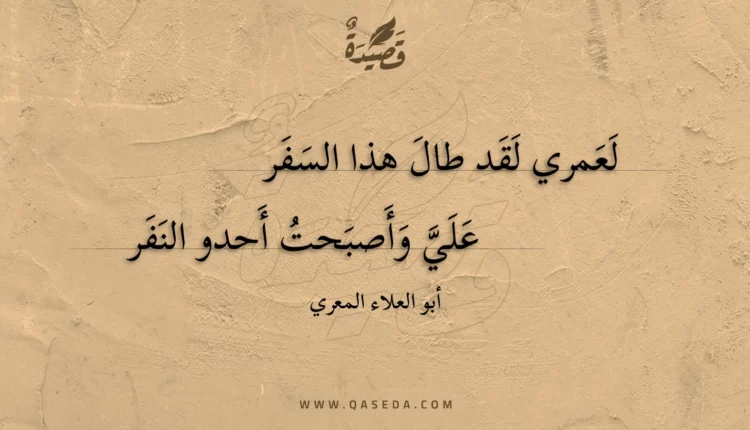 قَصِيدَةٌ
لَعَمري لَقَد طالَ هذا السَفَر
عَلَيَّ وَأَصبَحتُ أَحدو النَفَر
أبو العلاء المعري
WWW.QASEDA.COM